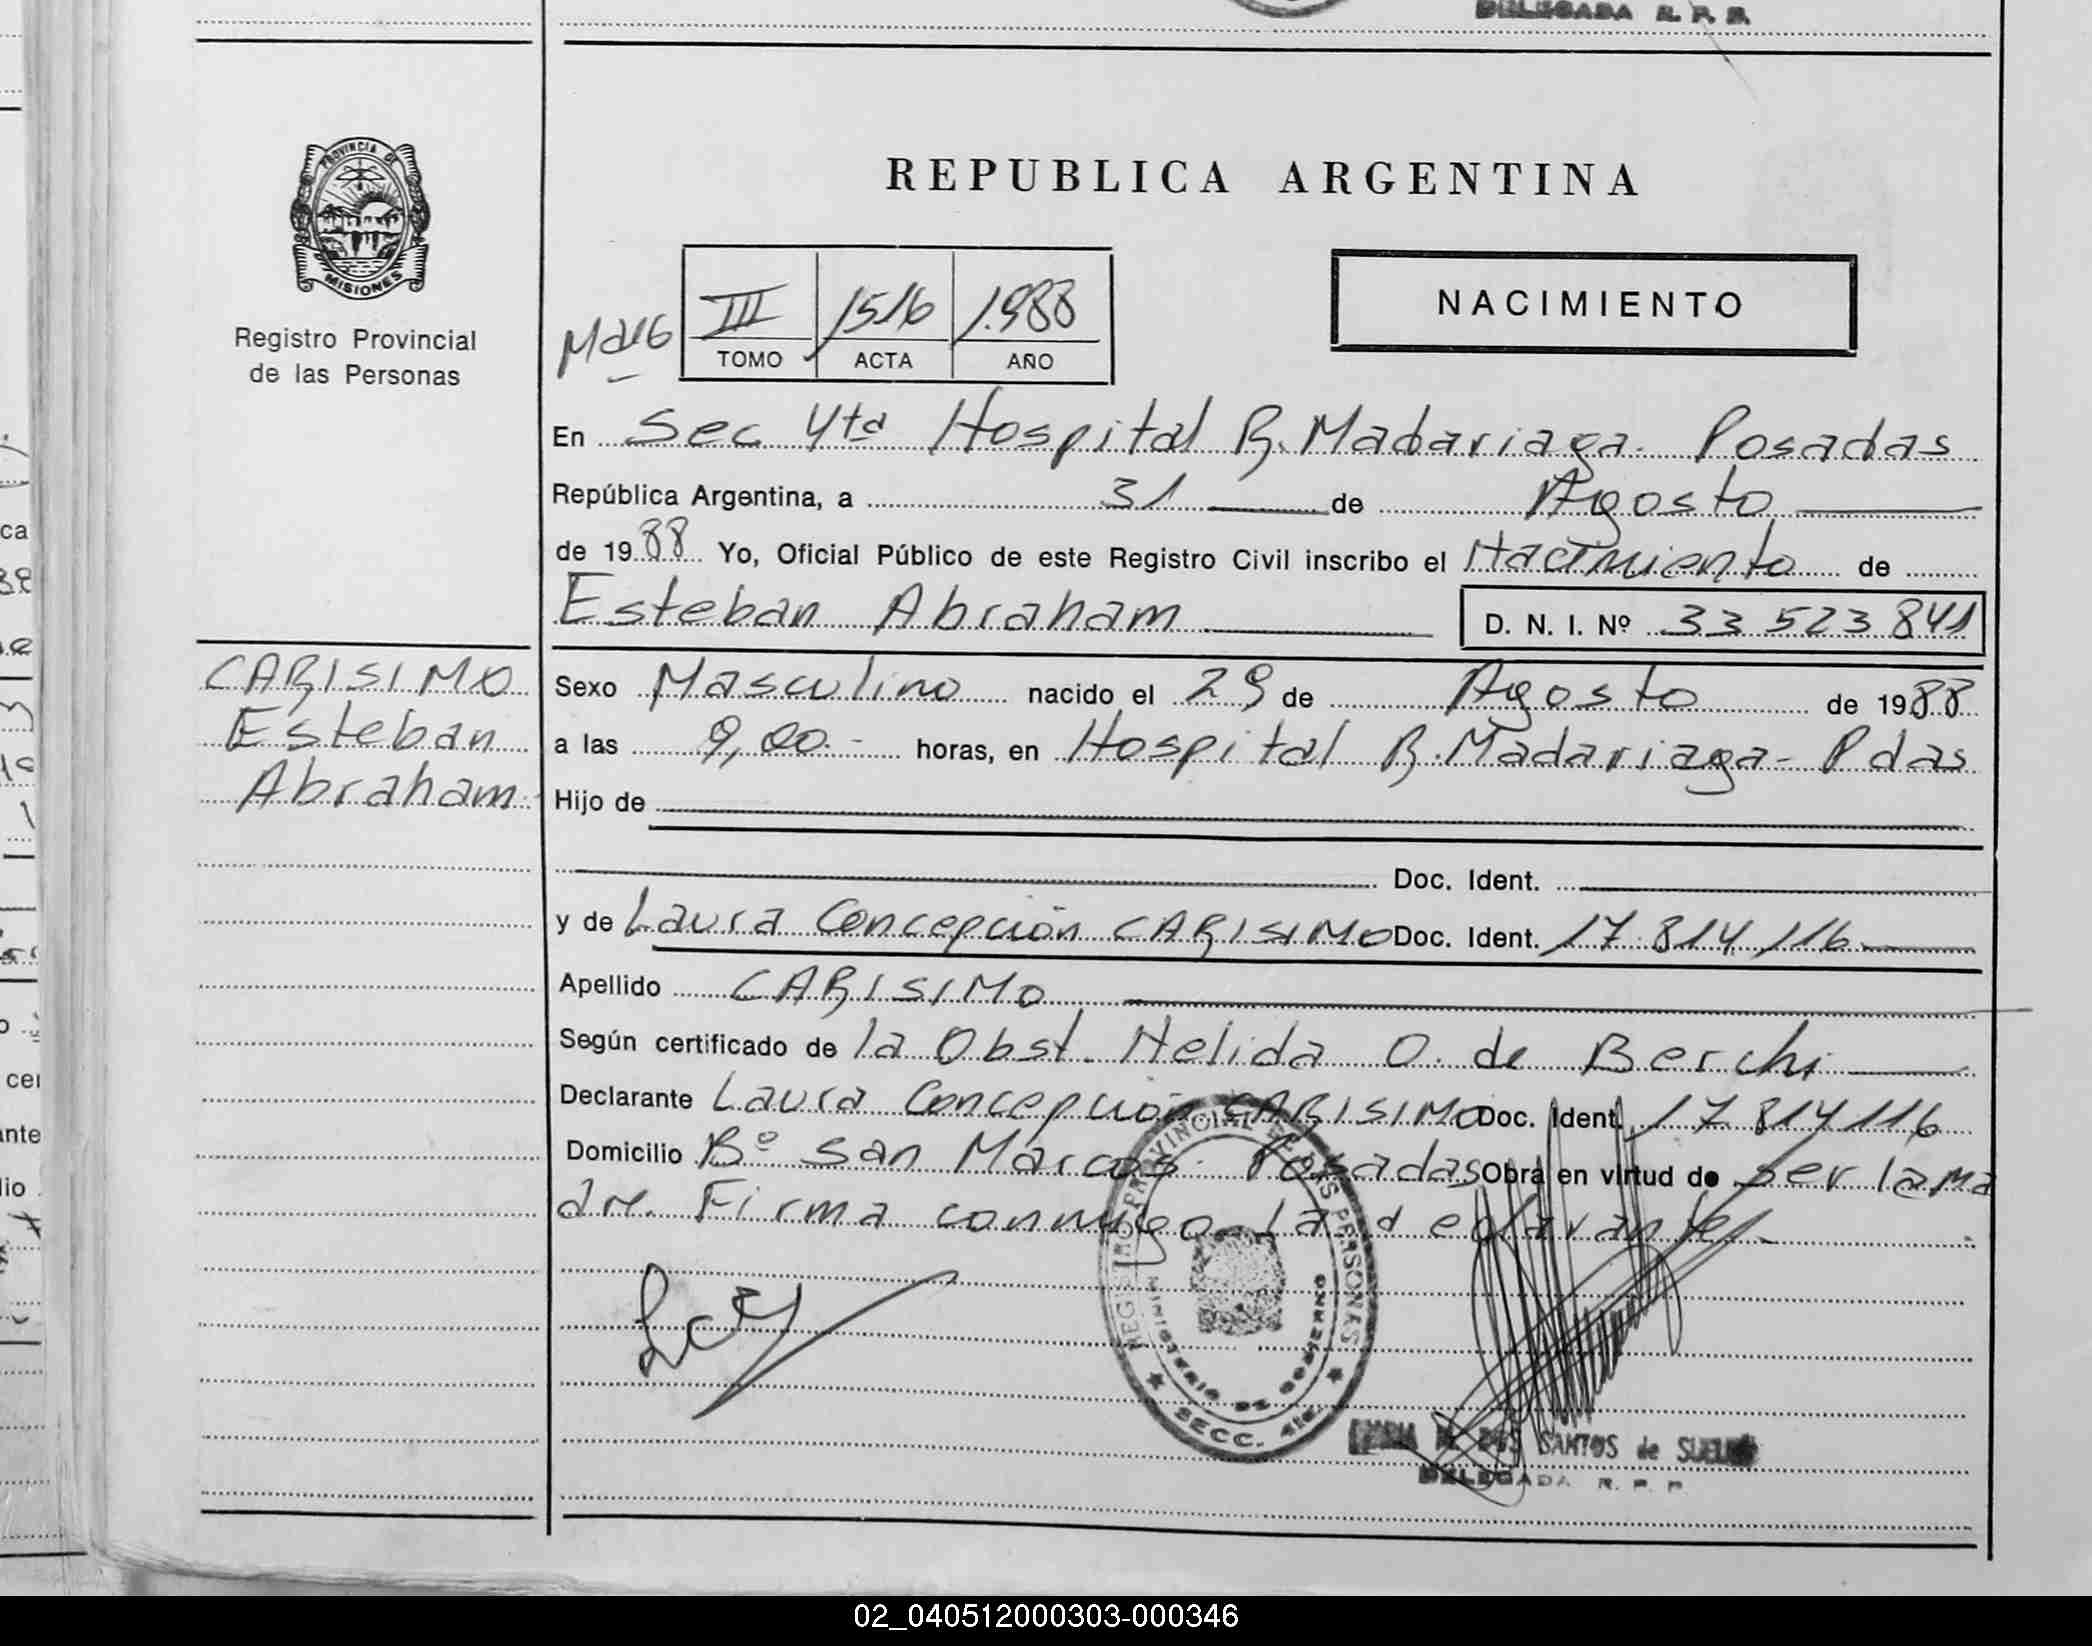 DELEGADA R. P. P.
PROVINCIA DE
MISIONES
Registro Provincial
de las Personas
REPUBLICA ARGENTINA
III 1516 1.988
TOMO ACTA AÑO
NACIMIENTO
En Sec 4ta Hospital R. Madariaga. Posadas
República Argentina, a 31 de Agosto
de 1988 Yo, Oficial Público de este Registro Civil inscribo el Nacimiento de
Esteban Abraham D. N. I. Nº 33 523 841
CARISIMO
Esteban
Abraham
Sexo Masculino nacido el 29 de Agosto de 1988
a las 9,00.- horas, en Hospital R. Madariaga - Pdas
Hijo de
Doc. Ident.
y de Laura Concepción CARISIMO Doc. Ident. 17.814.116
Apellido CARISIMO
Según certificado de la Obst. Nelida O. de Berchi
Declarante Laura Concepción CARISIMO Doc. Ident. 17 814 116
Domicilio Bº San Marcos. Posadas Obra en virtud de ser la ma
dre. Firma conmigo la declarante.
REGISTRO PROVINCIAL DE LAS PERSONAS
MINISTERIO DE GOBIERNO
SECC. 4ta.
DOS SANTOS de
DELEGADA R. P. P.
02_040512000303-000346